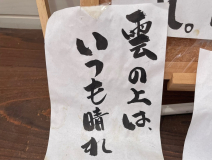 雲の上は、
いつも晴れ